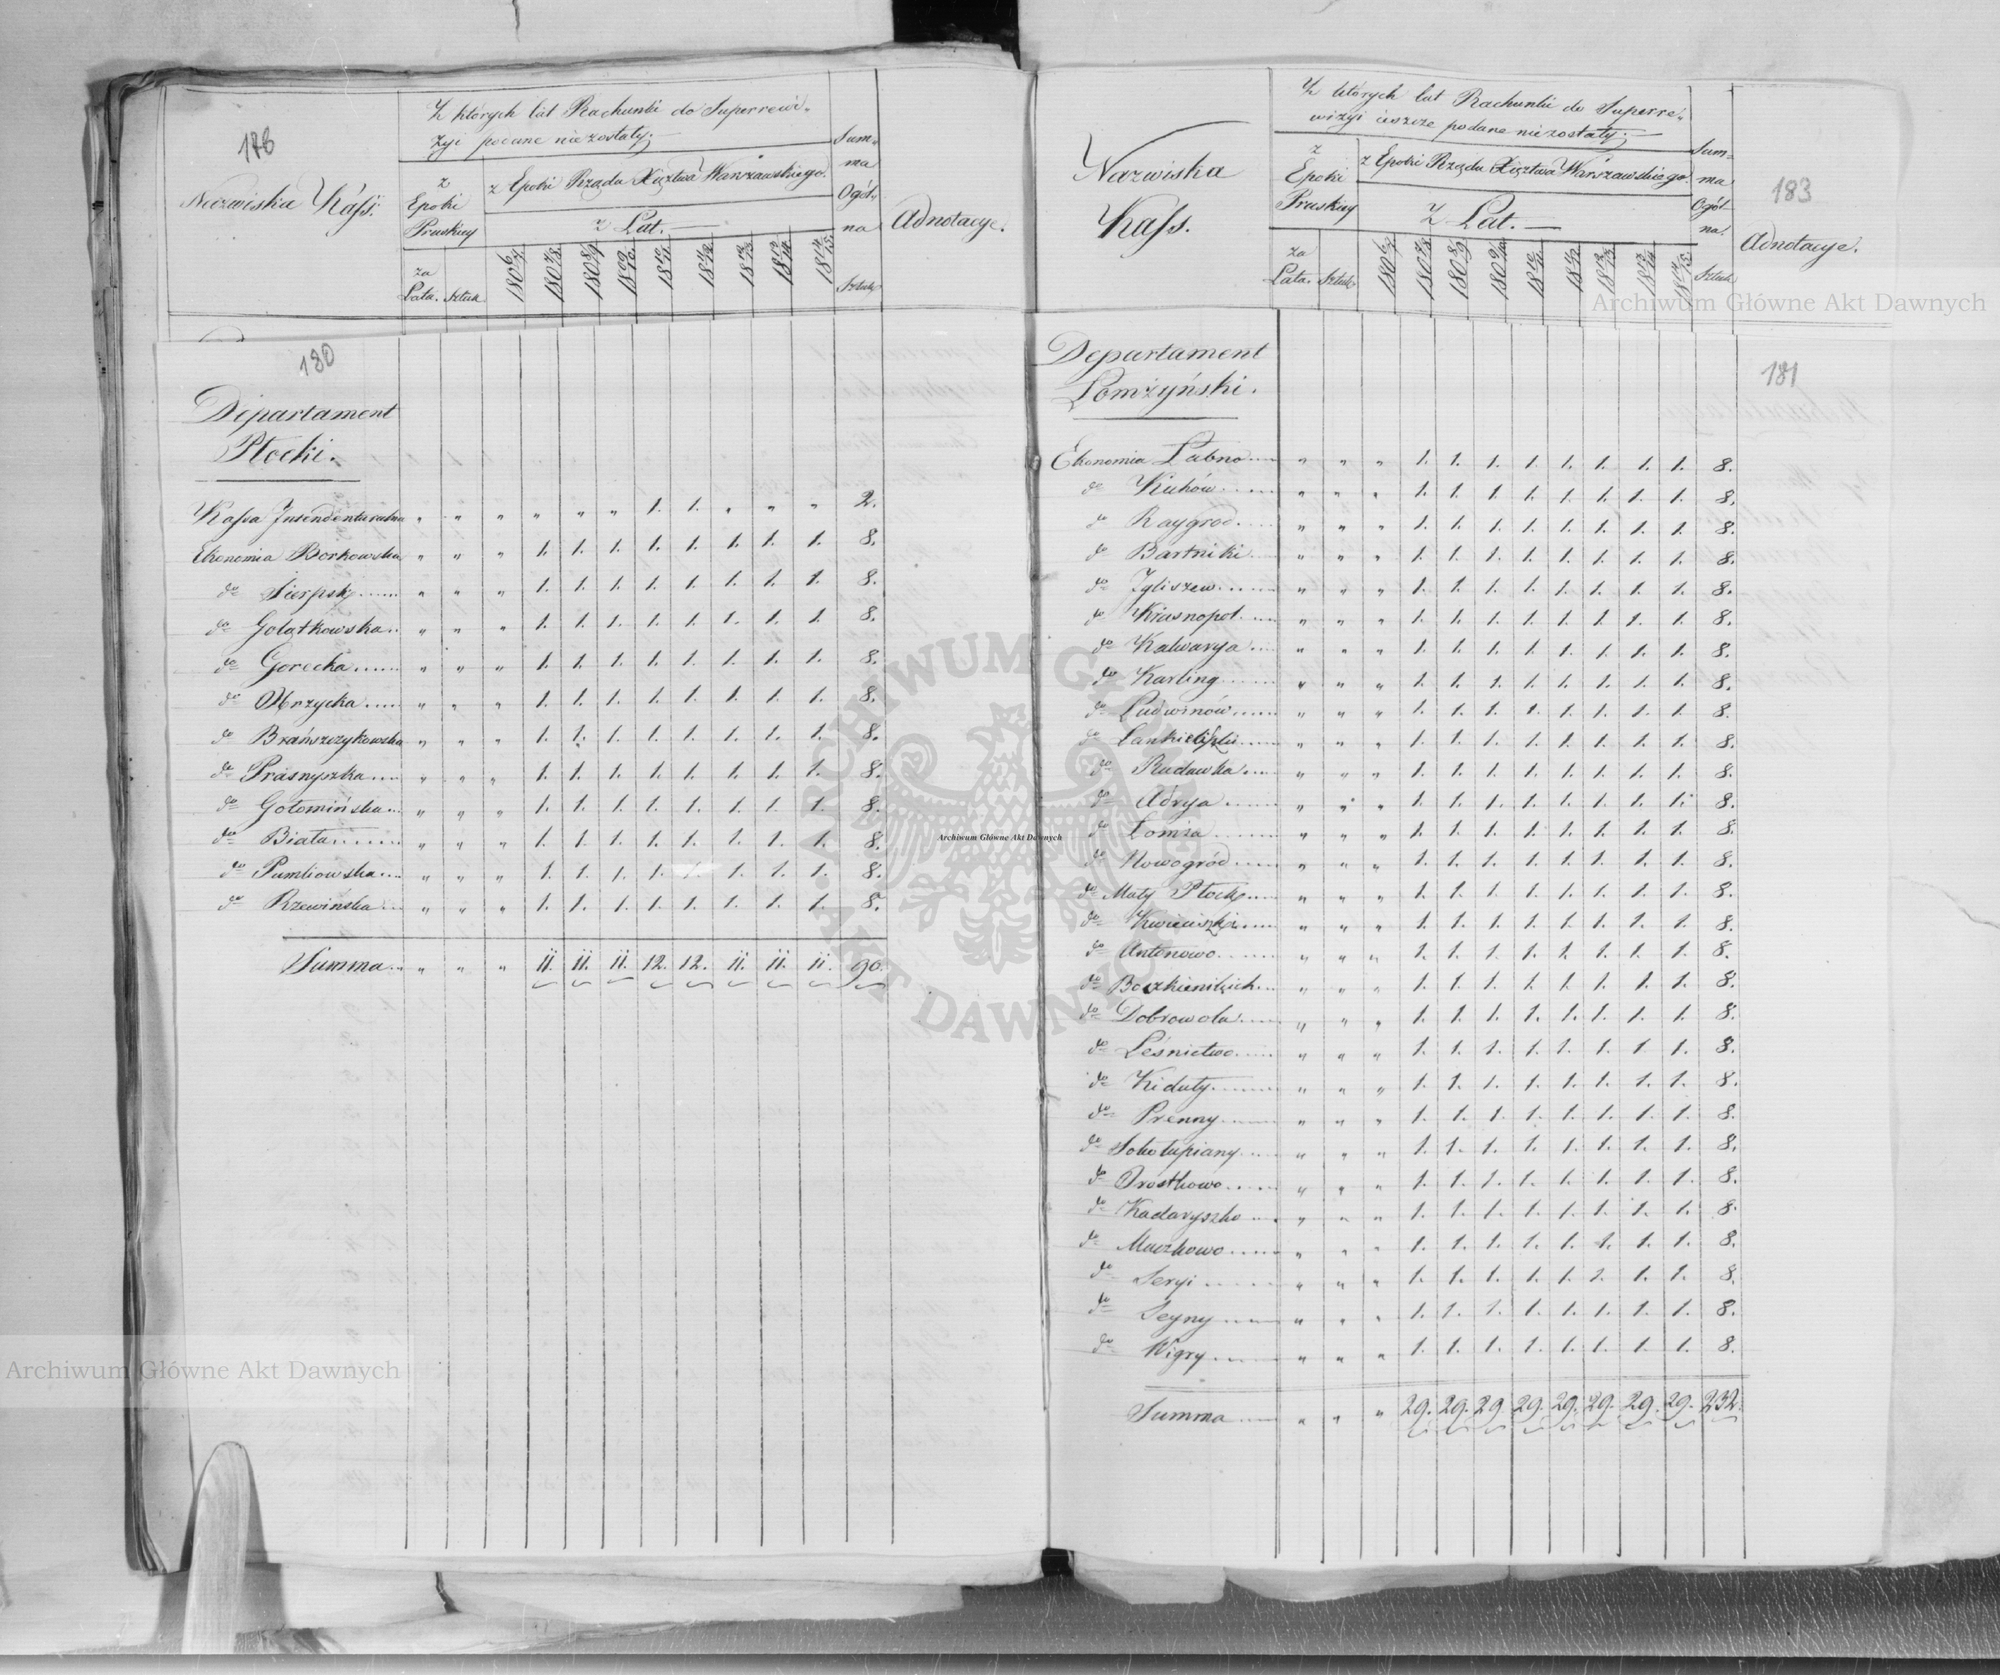 178
Nazwiska Kass.
Z których lat Rachunki do Superrewi-
zyi podane niezostały;
z Epoki Pruskiey
z Epoki Rządu Xięztwa Warszawskiego.
z Lat.
Summa Ogól-na
Adnotacye.
za Lata. Sztuk 180 6/7 180 7/8 180 8/9 18 09/10 18 10/11 18 11/12 18 12/13 18 13/14 18 14/15 Sztuk
180
Departament
Płocki.
Kassa Intendenturalna " " " " " " 1. 1. " " " 2.
Ekonomia Borkowska " " " 1. 1. 1. 1. 1. 1. 1. 1. 8.
do Sierpsk...... " " " 1. 1. 1. 1. 1. 1. 1. 1. 8.
do Gołątkowska.. " " " 1. 1. 1. 1. 1. 1. 1. 1. 8.
do Gorecka...... " " " 1. 1. 1. 1. 1. 1. 1. 1. 8.
do Obrzycka..... " " " 1. 1. 1. 1. 1. 1. 1. 1. 8.
do Brańszczykowska " " " 1. 1. 1. 1. 1. 1. 1. 1. 8.
do Prasnyszka.... " " " 1. 1. 1. 1. 1. 1. 1. 1. 8.
do Gołomińska... " " " 1. 1. 1. 1. 1. 1. 1. 1. 8.
do Biała......... " " " 1. 1. 1. 1. 1. 1. 1. 1. 8.
do " " " 1. 1. 1. 1. 1. 1. 1. 1. 8.
do Rzewińska... " " " 1. 1. 1. 1. 1. 1. 1. 1. 8.
Summa... " " " 11. 11. 11. 12. 12. 11. 11. 11. 90.
Nazwiska
Kass.
Z których lat Rachunki do Superre-
wizyi ieszcze podane niezostały;
z Epoki Pruskiey
z Epoki Rządu Xięztwa Warszawskiego.
Z Lat.
Summa Ogól-na.
183
Adnotacye.
za Lata. Sztuk 180 6/7 180 7/8 180 8/9 180 9/10 18 10/11 18 11/12 18 12/13 18 13/14 18 14/15 Sztuk
181
Departament
Łomżyński.
Ekonomia Łabno.... " " " 1. 1. 1. 1. 1. 1. 1. 1. 8.
do " " " 1. 1. 1. 1. 1. 1. 1. 1. 8.
do Raygrod..... " " " 1. 1. 1. 1. 1. 1. 1. 1. 8.
do Bartniki.... " " " 1. 1. 1. 1. 1. 1. 1. 1. 8.
do Igliszew...... " " " 1. 1. 1. 1. 1. 1. 1. 1. 8.
do Krasnopol..... " " " 1. 1. 1. 1. 1. 1. 1. 1. 8.
do Kalwarya.... " " " 1. 1. 1. 1. 1. 1. 1. 1. 8.
do Karling....... " " " 1. 1. 1. 1. 1. 1. 1. 1. 8.
do Ludwinów...... " " " 1. 1. 1. 1. 1. 1. 1. 1. 8.
do " " " 1. 1. 1. 1. 1. 1. 1. 1. 8.
do Rudawka.... " " " 1. 1. 1. 1. 1. 1. 1. 1. 8.
do Adrya....... " " " 1. 1. 1. 1. 1. 1. 1. 1. 8.
do Łomza........ " " " 1. 1. 1. 1. 1. 1. 1. 1. 8.
do Nowogród...... " " " 1. 1. 1. 1. 1. 1. 1. 1. 8.
do Mały Płock.... " " " 1. 1. 1. 1. 1. 1. 1. 1. 8.
do Kwieciszki..... " " " 1. 1. 1. 1. 1. 1. 1. 1. 8.
do Antonowo...... " " " 1. 1. 1. 1. 1. 1. 1. 1. 8.
do " " " 1. 1. 1. 1. 1. 1. 1. 1. 8.
do Dobrowola..... " " " 1. 1. 1. 1. 1. 1. 1. 1. 8.
do Leśnictwo...... " " " 1. 1. 1. 1. 1. 1. 1. 1. 8.
do Kiduły........ " " " 1. 1. 1. 1. 1. 1. 1. 1. 8.
do Prenny....... " " " 1. 1. 1. 1. 1. 1. 1. 1. 8.
do Sokołupiany.... " " " 1. 1. 1. 1. 1. 1. 1. 1. 8.
do Drostkowo...... " " " 1. 1. 1. 1. 1. 1. 1. 1. 8.
do Kadaryszko.... " " " 1. 1. 1. 1. 1. 1. 1. 1. 8.
do Maczkowo...... " " " 1. 1. 1. 1. 1. 1. 1. 1. 8.
do Seryi........ " " " 1. 1. 1. 1. 1. 1. 1. 1. 8.
do Seyny........ " " " 1. 1. 1. 1. 1. 1. 1. 1. 8.
do Wigry........ " " " 1. 1. 1. 1. 1. 1. 1. 1. 8.
Summa..... " " " 29. 29. 29. 29. 29. 29. 29. 29. 232.
Archiwum Główne Akt Dawnych
Archiwum Główne Akt Dawnych
Archiwum Główne Akt Dawnych
ARCHIWUM GŁÓWNE AKT DAWNYCH